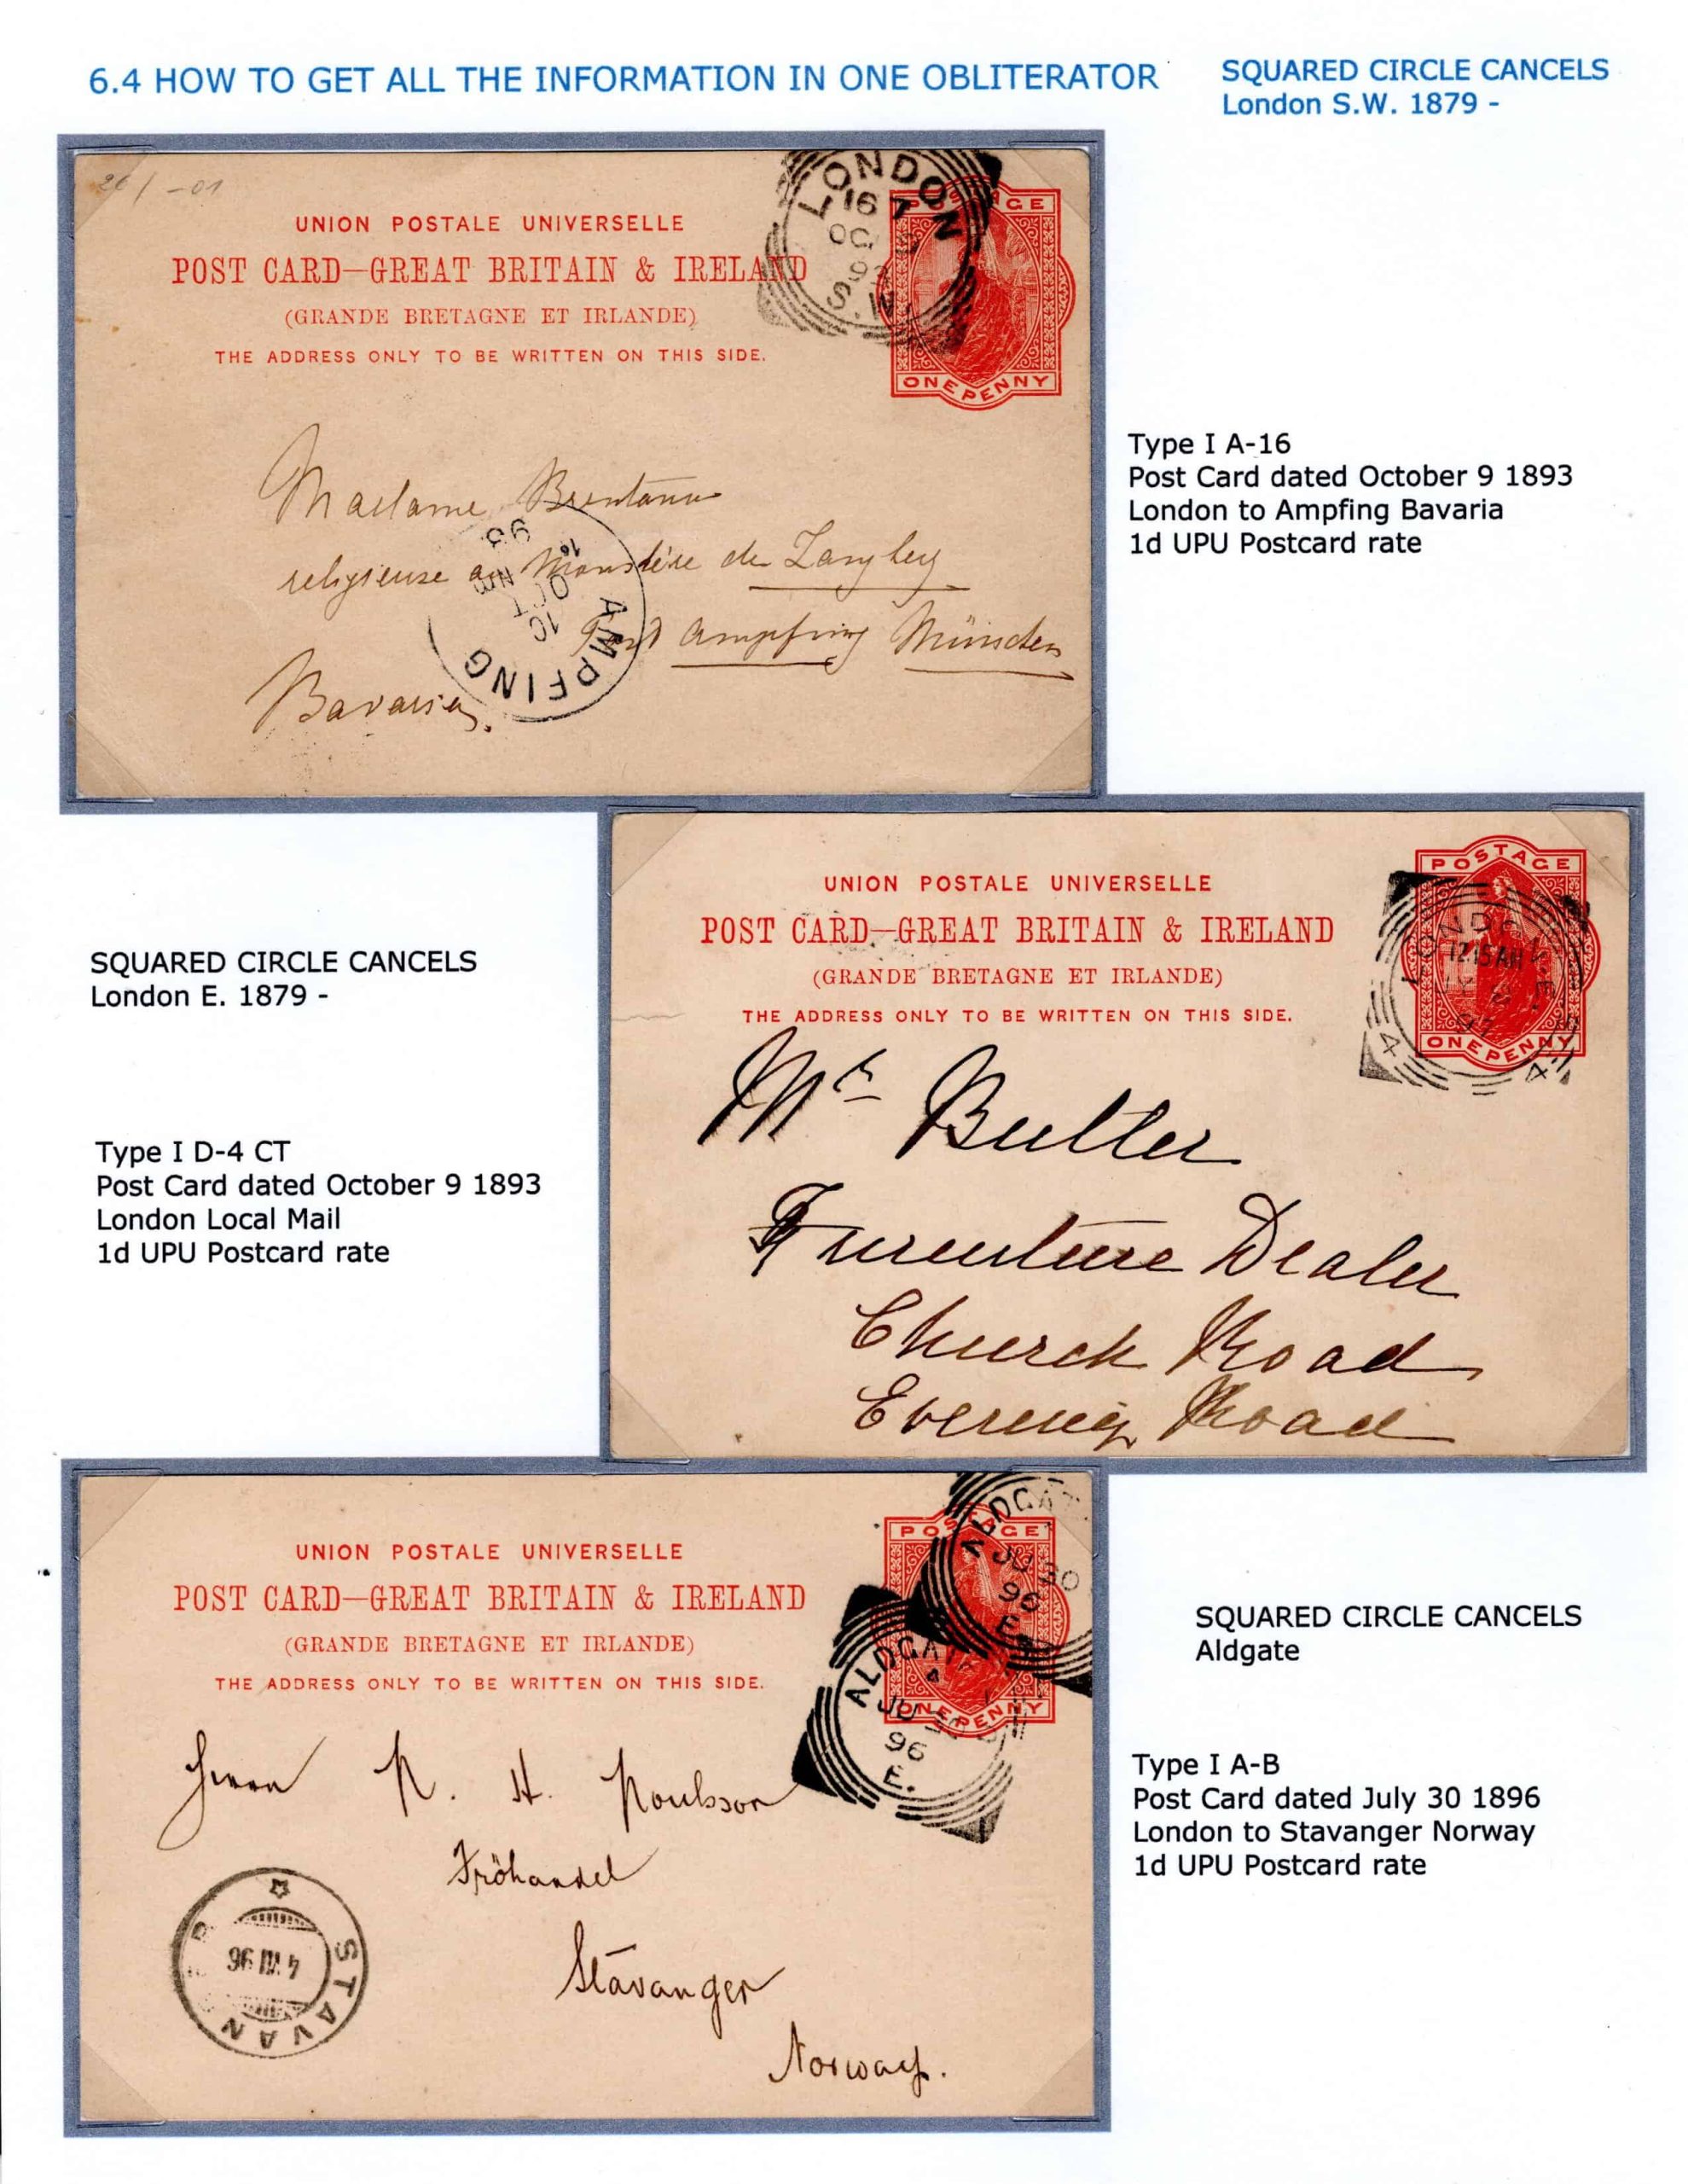 6.4 HOW TO GET ALL THE INFORMATION IN ONE OBLITERATOR
SQUARED CIRCLE CANCELS
London S.W. 1879 -
26/ -01
UNION POSTALE UNIVERSELLE
POST CARD—GREAT BRITAIN & IRELAND
(GRANDE BRETAGNE ET IRLANDE)
THE ADDRESS ONLY TO BE WRITTEN ON THIS SIDE.
POSTAGE
ONE PENNY
LONDON
16 7
OC 9
93
S.W.
Madame Brentano
religieuse au Monstère de
Post Ampfing München
Bavaria.
AMPFING
10
OCT
93
Type I A-16
Post Card dated October 9 1893
London to Ampfing Bavaria
1d UPU Postcard rate
SQUARED CIRCLE CANCELS
London E. 1879 -
Type I D-4 CT
Post Card dated October 9 1893
London Local Mail
1d UPU Postcard rate
UNION POSTALE UNIVERSELLE
POST CARD—GREAT BRITAIN & IRELAND
(GRANDE BRETAGNE ET IRLANDE)
THE ADDRESS ONLY TO BE WRITTEN ON THIS SIDE.
POSTAGE
ONE PENNY
LONDON. E.
12.15AM
97
4 4
Mr Butler
Furenture Dealer
Church Road
Road
UNION POSTALE UNIVERSELLE
POST CARD—GREAT BRITAIN & IRELAND
(GRANDE BRETAGNE ET IRLANDE)
THE ADDRESS ONLY TO BE WRITTEN ON THIS SIDE.
POSTAGE
ONE PENNY
ALDGAT
JU 30
96
E.
ALDGATE
JU 30
96
E.
Herrn
Fröhandel
Stavanger
Norway.
STAVAN
4 VIII 96
SQUARED CIRCLE CANCELS
Aldgate
Type I A-B
Post Card dated July 30 1896
London to Stavanger Norway
1d UPU Postcard rate